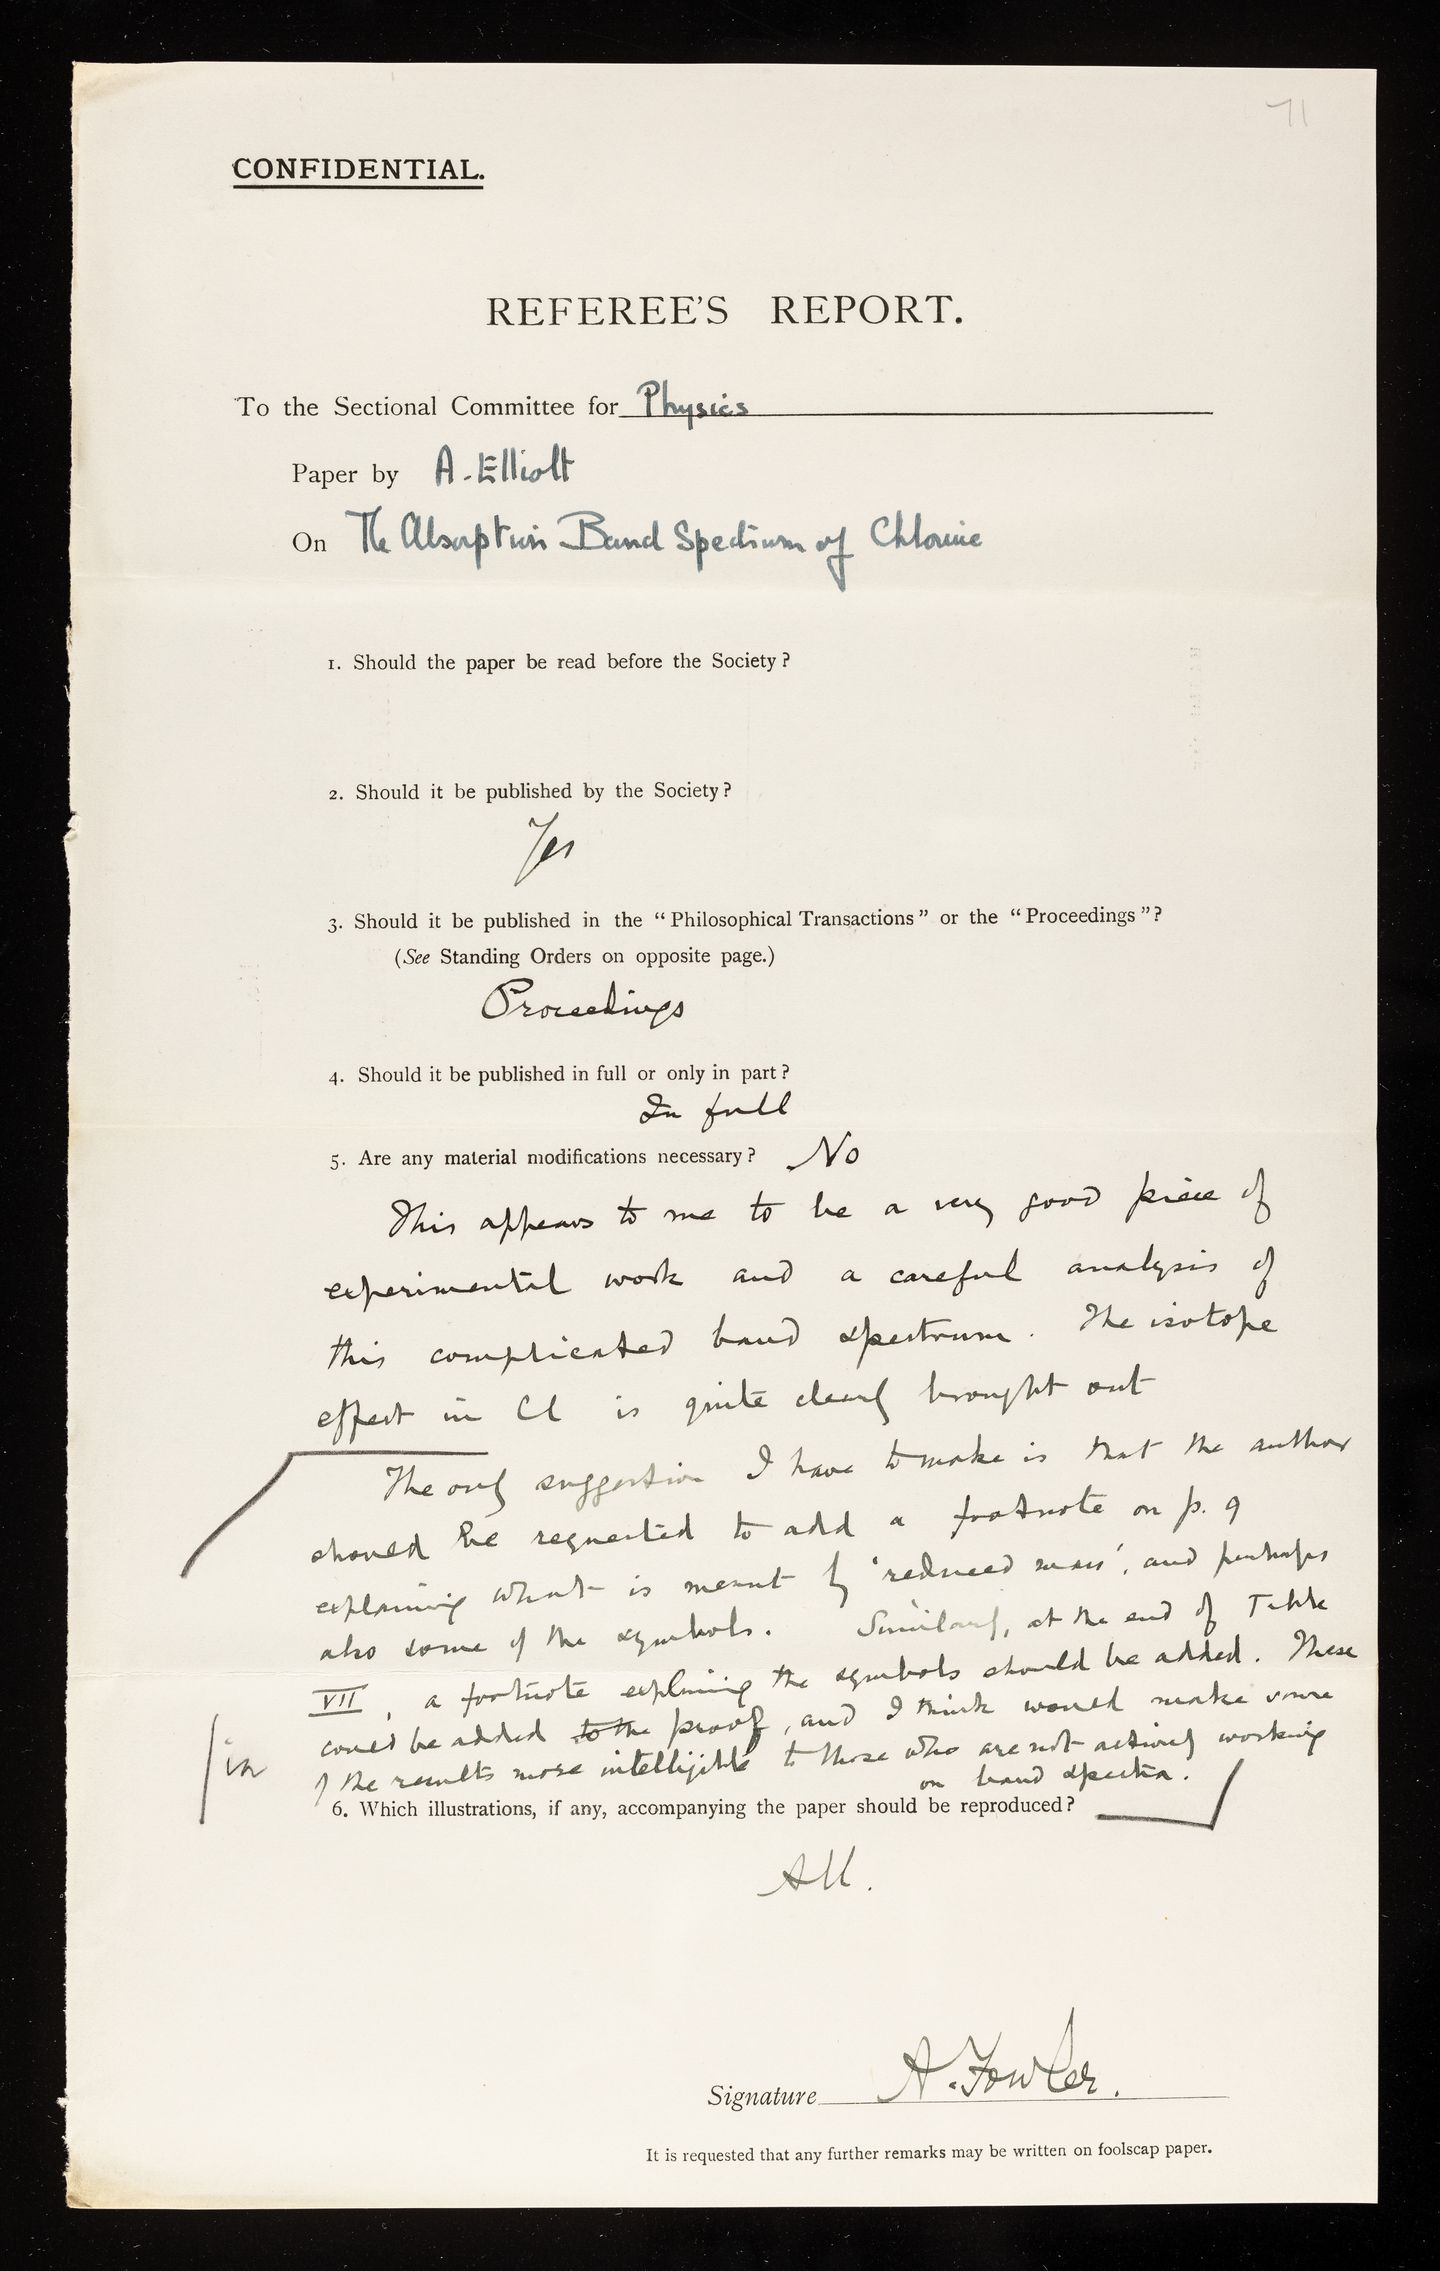 71
CONFIDENTIAL.
REFEREE'S REPORT.
To the Sectional Committee for Physics
Paper by A. Elliott
On The Absorption Band Spectrum of Chlorine
1. Should the paper be read before the Society?
2. Should it be published by the Society?
Yes
3. Should it be published in the "Philosophical Transactions" or the "Proceedings"?
(See Standing Orders on opposite page.)
Proceedings
4. Should it be published in full or only in part?
In full
5. Are any material modifications necessary? No
This appears to me to be a very good piece of
experimental work and a careful analysis of
this complicated band spectrum. The isotope
effect in Cl is quite clearly brought out
The only suggestion I have to make is that the author
should be requested to add a footnote on p. 9
explaining what is meant by 'reduced mass', and perhaps
also some of the symbols. Similarly, at the end of Table
VII, a footnote explaining the symbols should be added. These
could be added to the proof, and I think would make some
/in of the results more intelligible to those who are not actively working
on band spectra.
6. Which illustrations, if any, accompanying the paper should be reproduced?
All.
Signature A. Fowler.
It is requested that any further remarks may be written on foolscap paper.